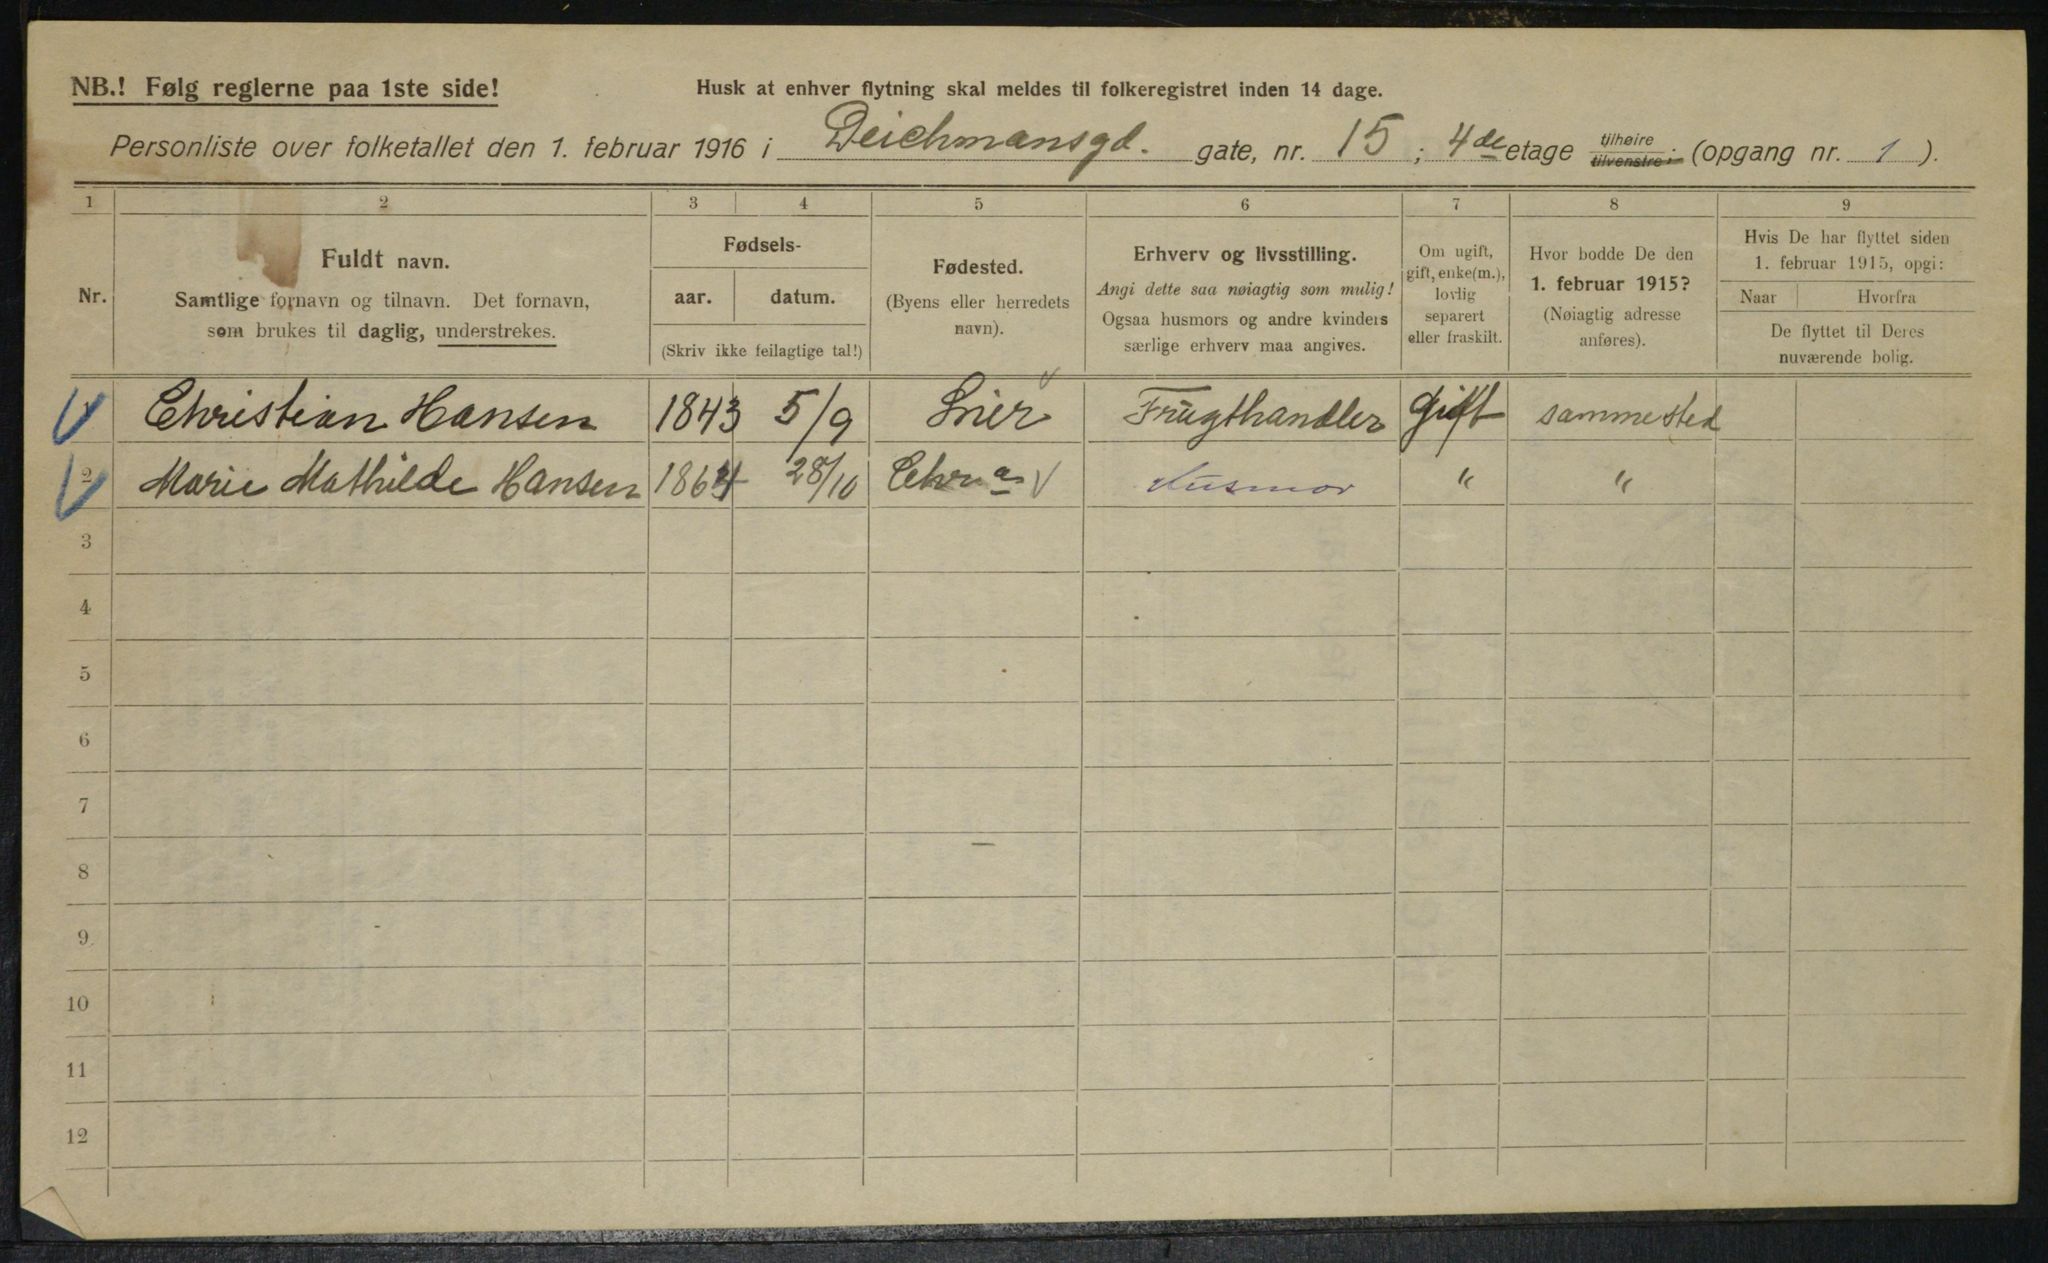 NB.! Følg reglerne paa 1ste side!
Husk at enhver flytning skal meldes til folkeregistret inden 14 dage.
Personliste over folketallet den 1. februar 1916 i Deichmansgd. gate, nr. 15; 4de etage tilhøire tilvenstre; (opgang nr. 1).
1 2 3 4 5 6 7 8 9
Nr.
Fuldt navn.
Samtlige fornavn og tilnavn. Det fornavn,
som brukes til daglig, understrekes.
Fødsels-
aar. datum.
(Skriv ikke feilagtige tal!)
Fødested.
(Byens eller herredets
navn).
Erhverv og livsstilling.
Angi dette saa nøiagtig som mulig!
Ogsaa husmors og andre kvinders
særlige erhverv maa angives.
Om ugift,
gift, enke(m.),
lovlig
separert
eller fraskilt.
Hvor bodde De den
1. februar 1915?
(Nøiagtig adresse
anføres).
Hvis De har flyttet siden
1. februar 1915, opgi:
Naar Hvorfra
De flyttet til Deres
nuværende bolig.
1 Christian Hansen 1843 5/9 Lier Frugthandler gift sammested
2 Marie Mathilde Hansen 1864 28/10 Chr a Husmor " "
3
4
5
6
7
8
9
10
11
12